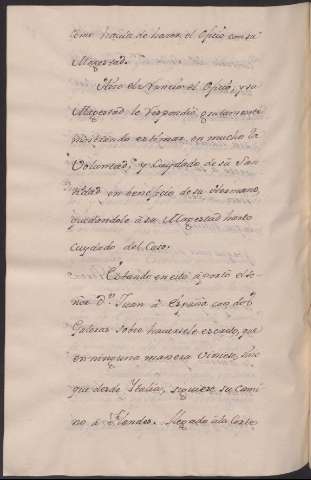 como havia de hacer el Oficio con su
Magestad.
Hizo el Nuncio el Oficio, y su
Magestad le respondió gratamente
mostrando estimar en mucho la
Voluntad, y Cuydado de su San
tidad en beneficio de su Hermano,
quedandole à su Magestad harto
cuydado del Caso.
Estando en esto aportò el Se-
ñor Dn. Juan à España con dos
Galeras sobre haversele escrito, que
en ninguna manera viniese, sino
que desde Italia, siguiese su Cami
no à Flandes. Llegado à la Corte